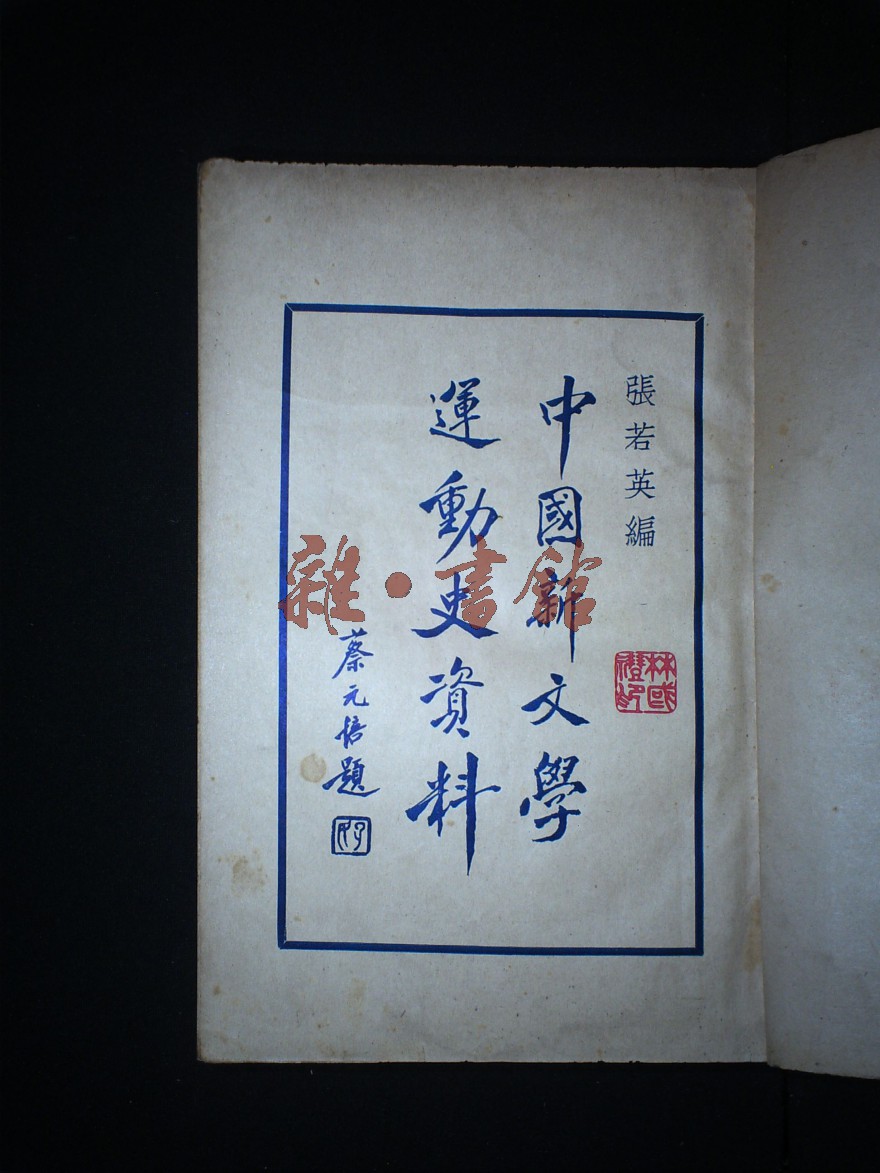 張若英編
中國新文學
運動史資料
蔡元培題
雜·書館